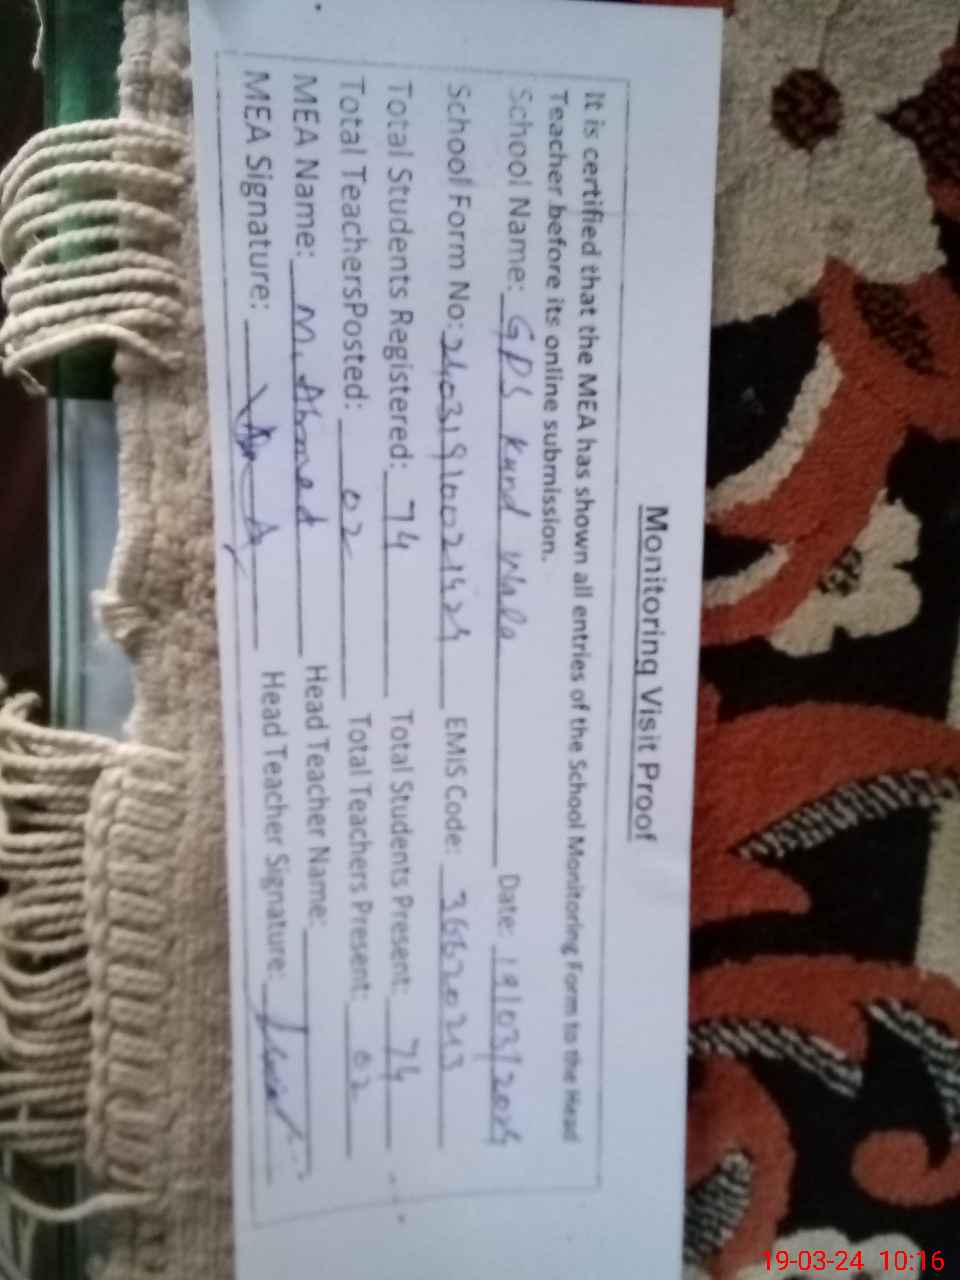 Monitoring Visit Proof
It is certified that the MEA has shown all entries of the School Monitoring Form to the Head
Teacher before its online submission.
School Name: GPS Kund Wala Date: 19/03/2024
School Form No: EMIS Code: 36620213
Total Students Registered: 74 Total Students Present: 74
Total TeachersPosted: 02 Total Teachers Present: 02
MEA Name: M. Ahmed Head Teacher Name:
MEA Signature: Head Teacher Signature:
19-03-24 10:16